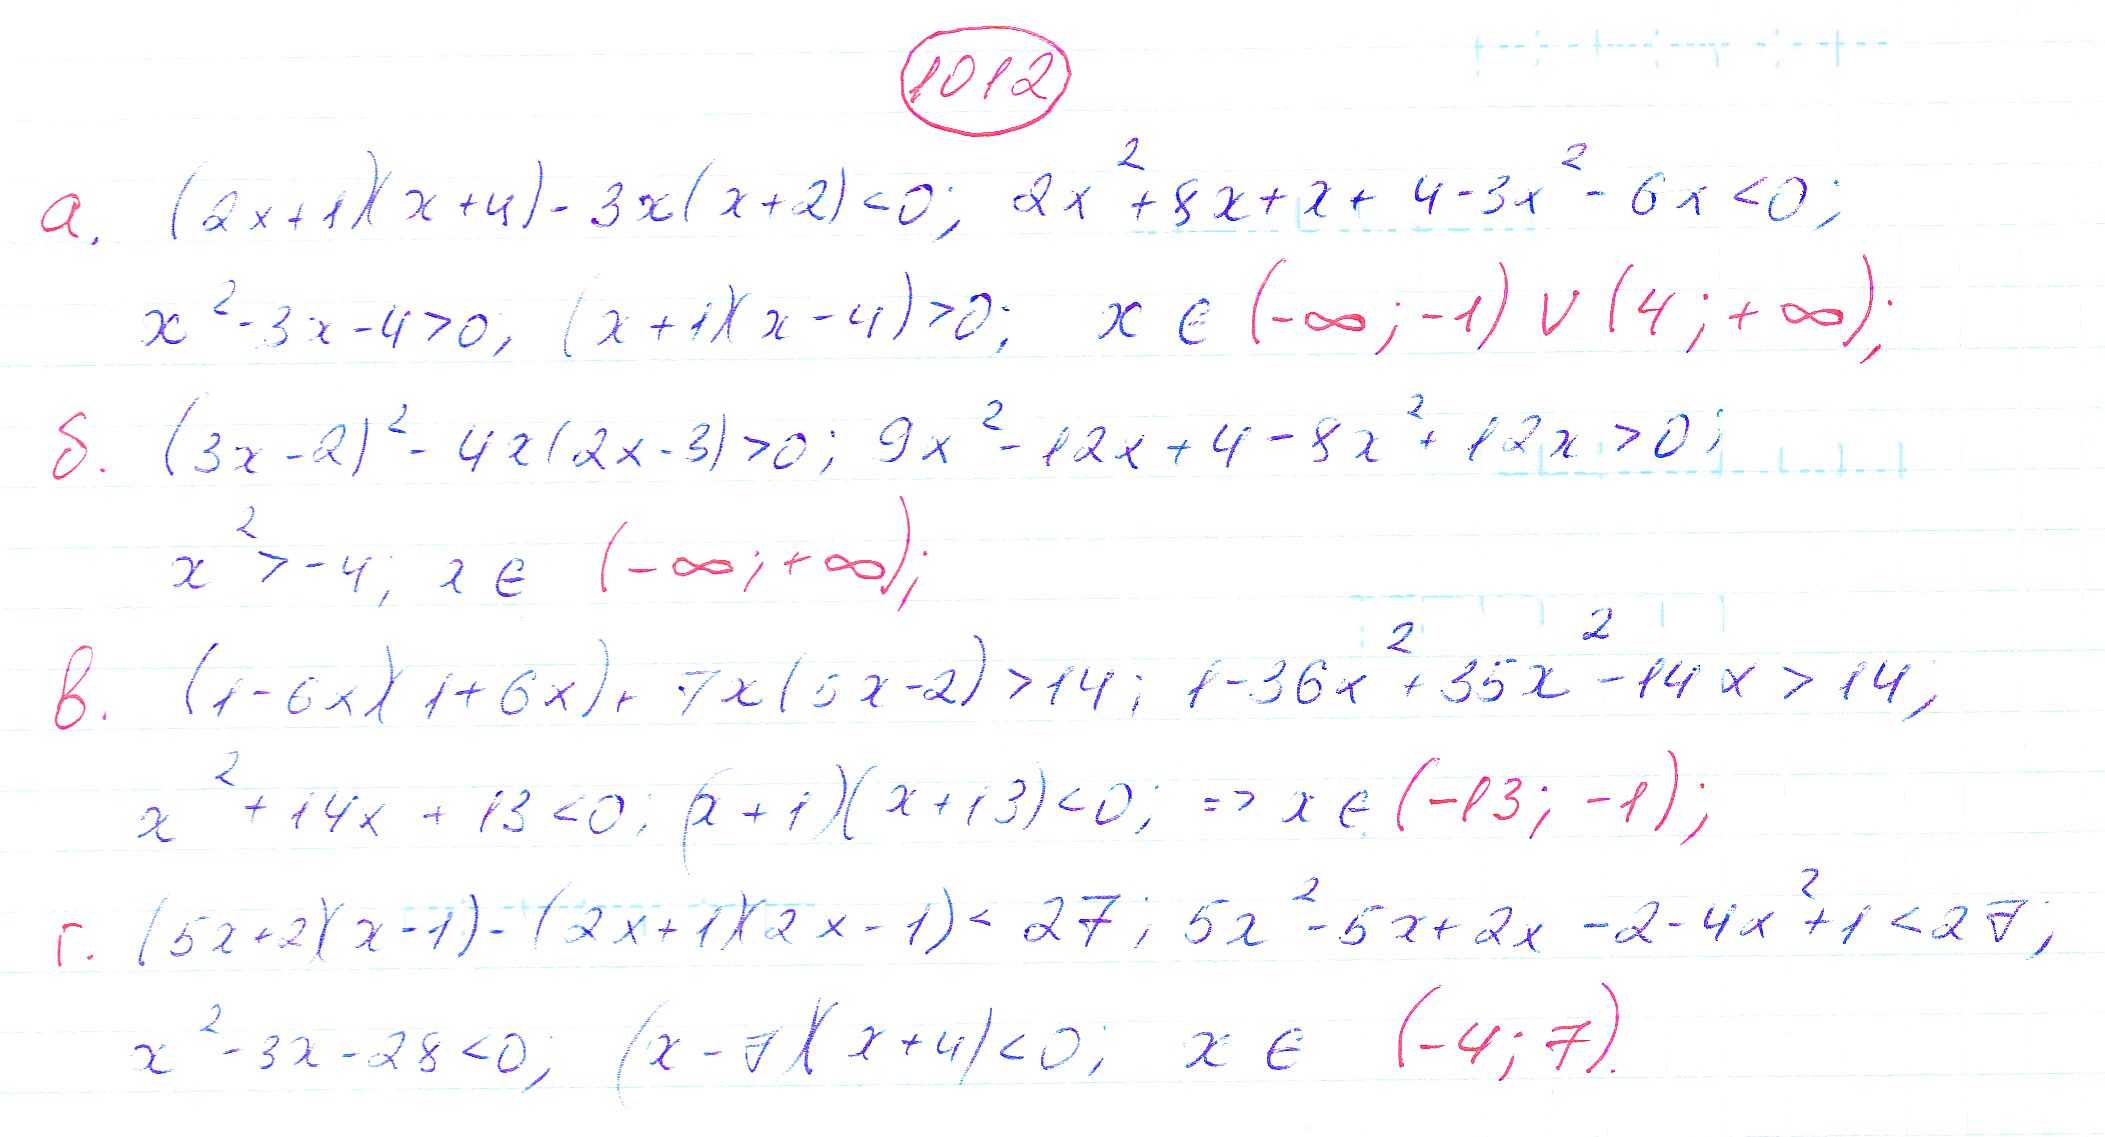 1012
а. (2x+1)(x+4)-3x(x+2)<0; 2x²+8x+x+4-3x²-6x<0;
x²-3x-4>0; (x+1)(x-4)>0; x∈(-∞;-1)∨(4;+∞);
б. (3x-2)²-4x(2x-3)>0; 9x²-12x+4-8x²+12x>0;
x²>-4; x∈(-∞;+∞);
в. (1-6x)(1+6x)+7x(5x-2)>14; 1-36x²+35x²-14x>14;
x²+14x+13<0; (x+1)(x+13)<0; => x∈(-13;-1);
г. (5x+2)(x-1)-(2x+1)(2x-1)<27; 5x²-5x+2x-2-4x²+1<27;
x²-3x-28<0; (x-7)(x+4)<0; x∈(-4;7).